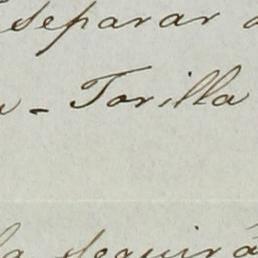 separar
- Torilla
la seguirá